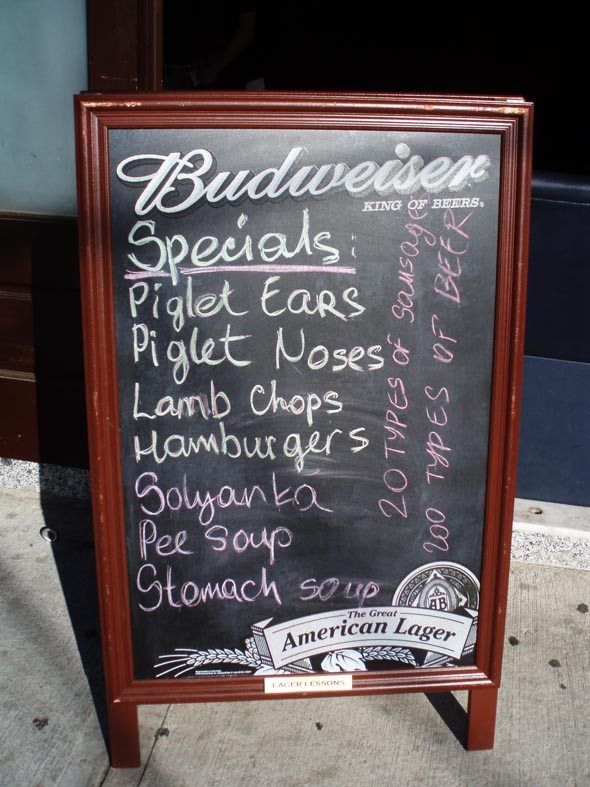 Budweiser
KING OF BEERS®
Specials:
Piglet Ears
Piglet Noses
Lamb Chops
Hamburgers
Solyanka
Pee soup
Stomach soup
20 TYPES of Sausage
200 TYPES OF BEER
The Great
American Lager
AB
LAGER LESSONS